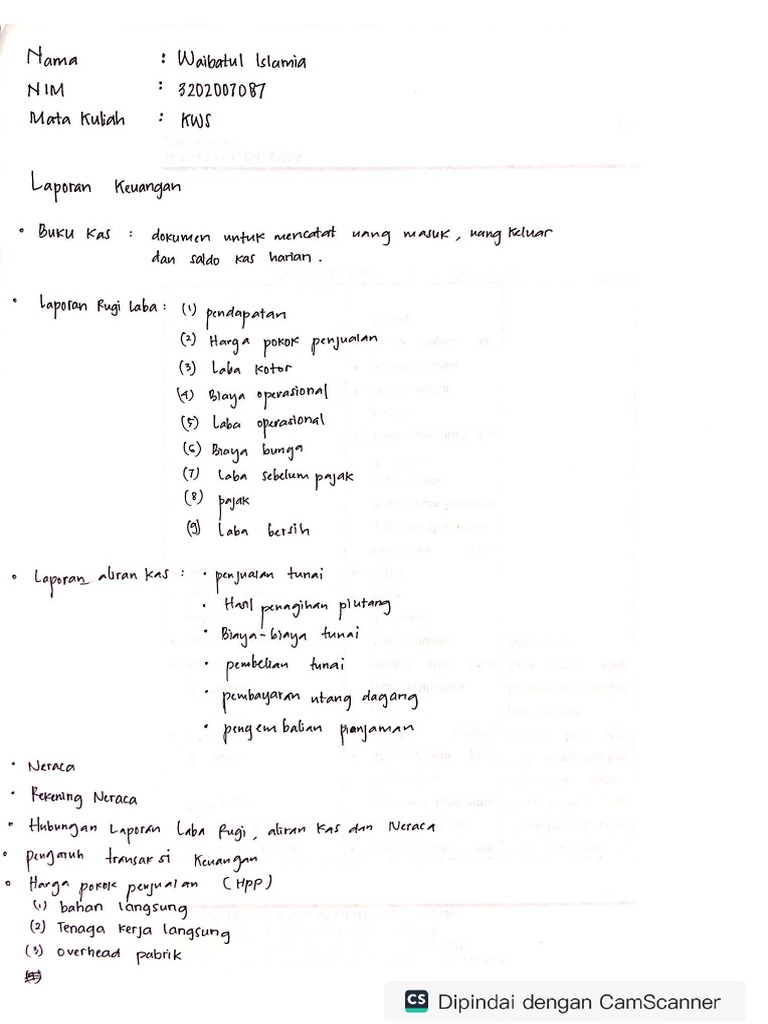 Nama : Waibatul Islamia
NIM : 3202007087
Mata Kuliah : KWS
Laporan Keuangan
• Buku Kas : dokumen untuk mencatat uang masuk, uang keluar
dan saldo kas harian.
• Laporan Rugi Laba : (1) pendapatan
(2) Harga pokok penjualan
(3) Laba kotor
(4) Biaya operasional
(5) Laba operasional
(6) Biaya bunga
(7) Laba sebelum pajak
(8) pajak
(9) Laba bersih
• Laporan aliran kas : • penjualan tunai
• Hasil penagihan piutang
• Biaya-biaya tunai
• pembelian tunai
• pembayaran utang dagang
• pengembalian pinjaman
• Neraca
• Rekening Neraca
• Hubungan Laporan Laba Rugi, aliran kas dan Neraca
• pengaruh transaksi Keuangan
• Harga pokok penjualan (HPP)
(1) bahan langsung
(2) Tenaga kerja langsung
(3) overhead pabrik
CS Dipindai dengan CamScanner